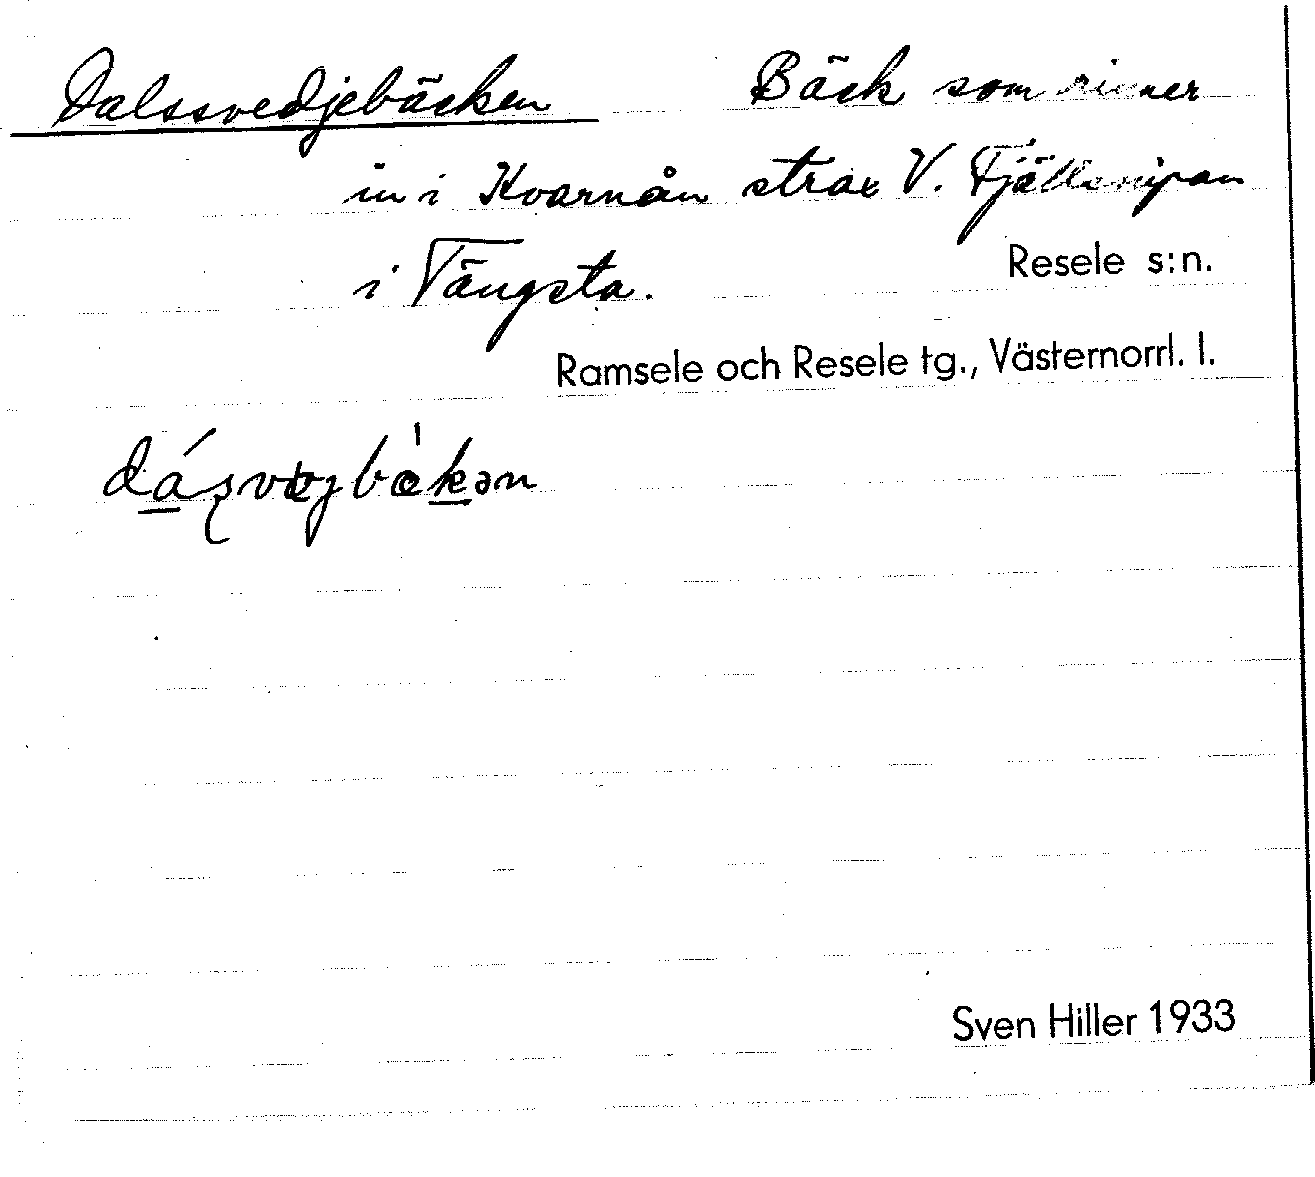 Dalssvedjebäcken Bäck som rinner
in i Kvarnån strax V. Fjällsnipan
i Tängsta. Resele s:n.
Ramsele och Resele tg., Västernorrl. l.
Sven Hiller 1933